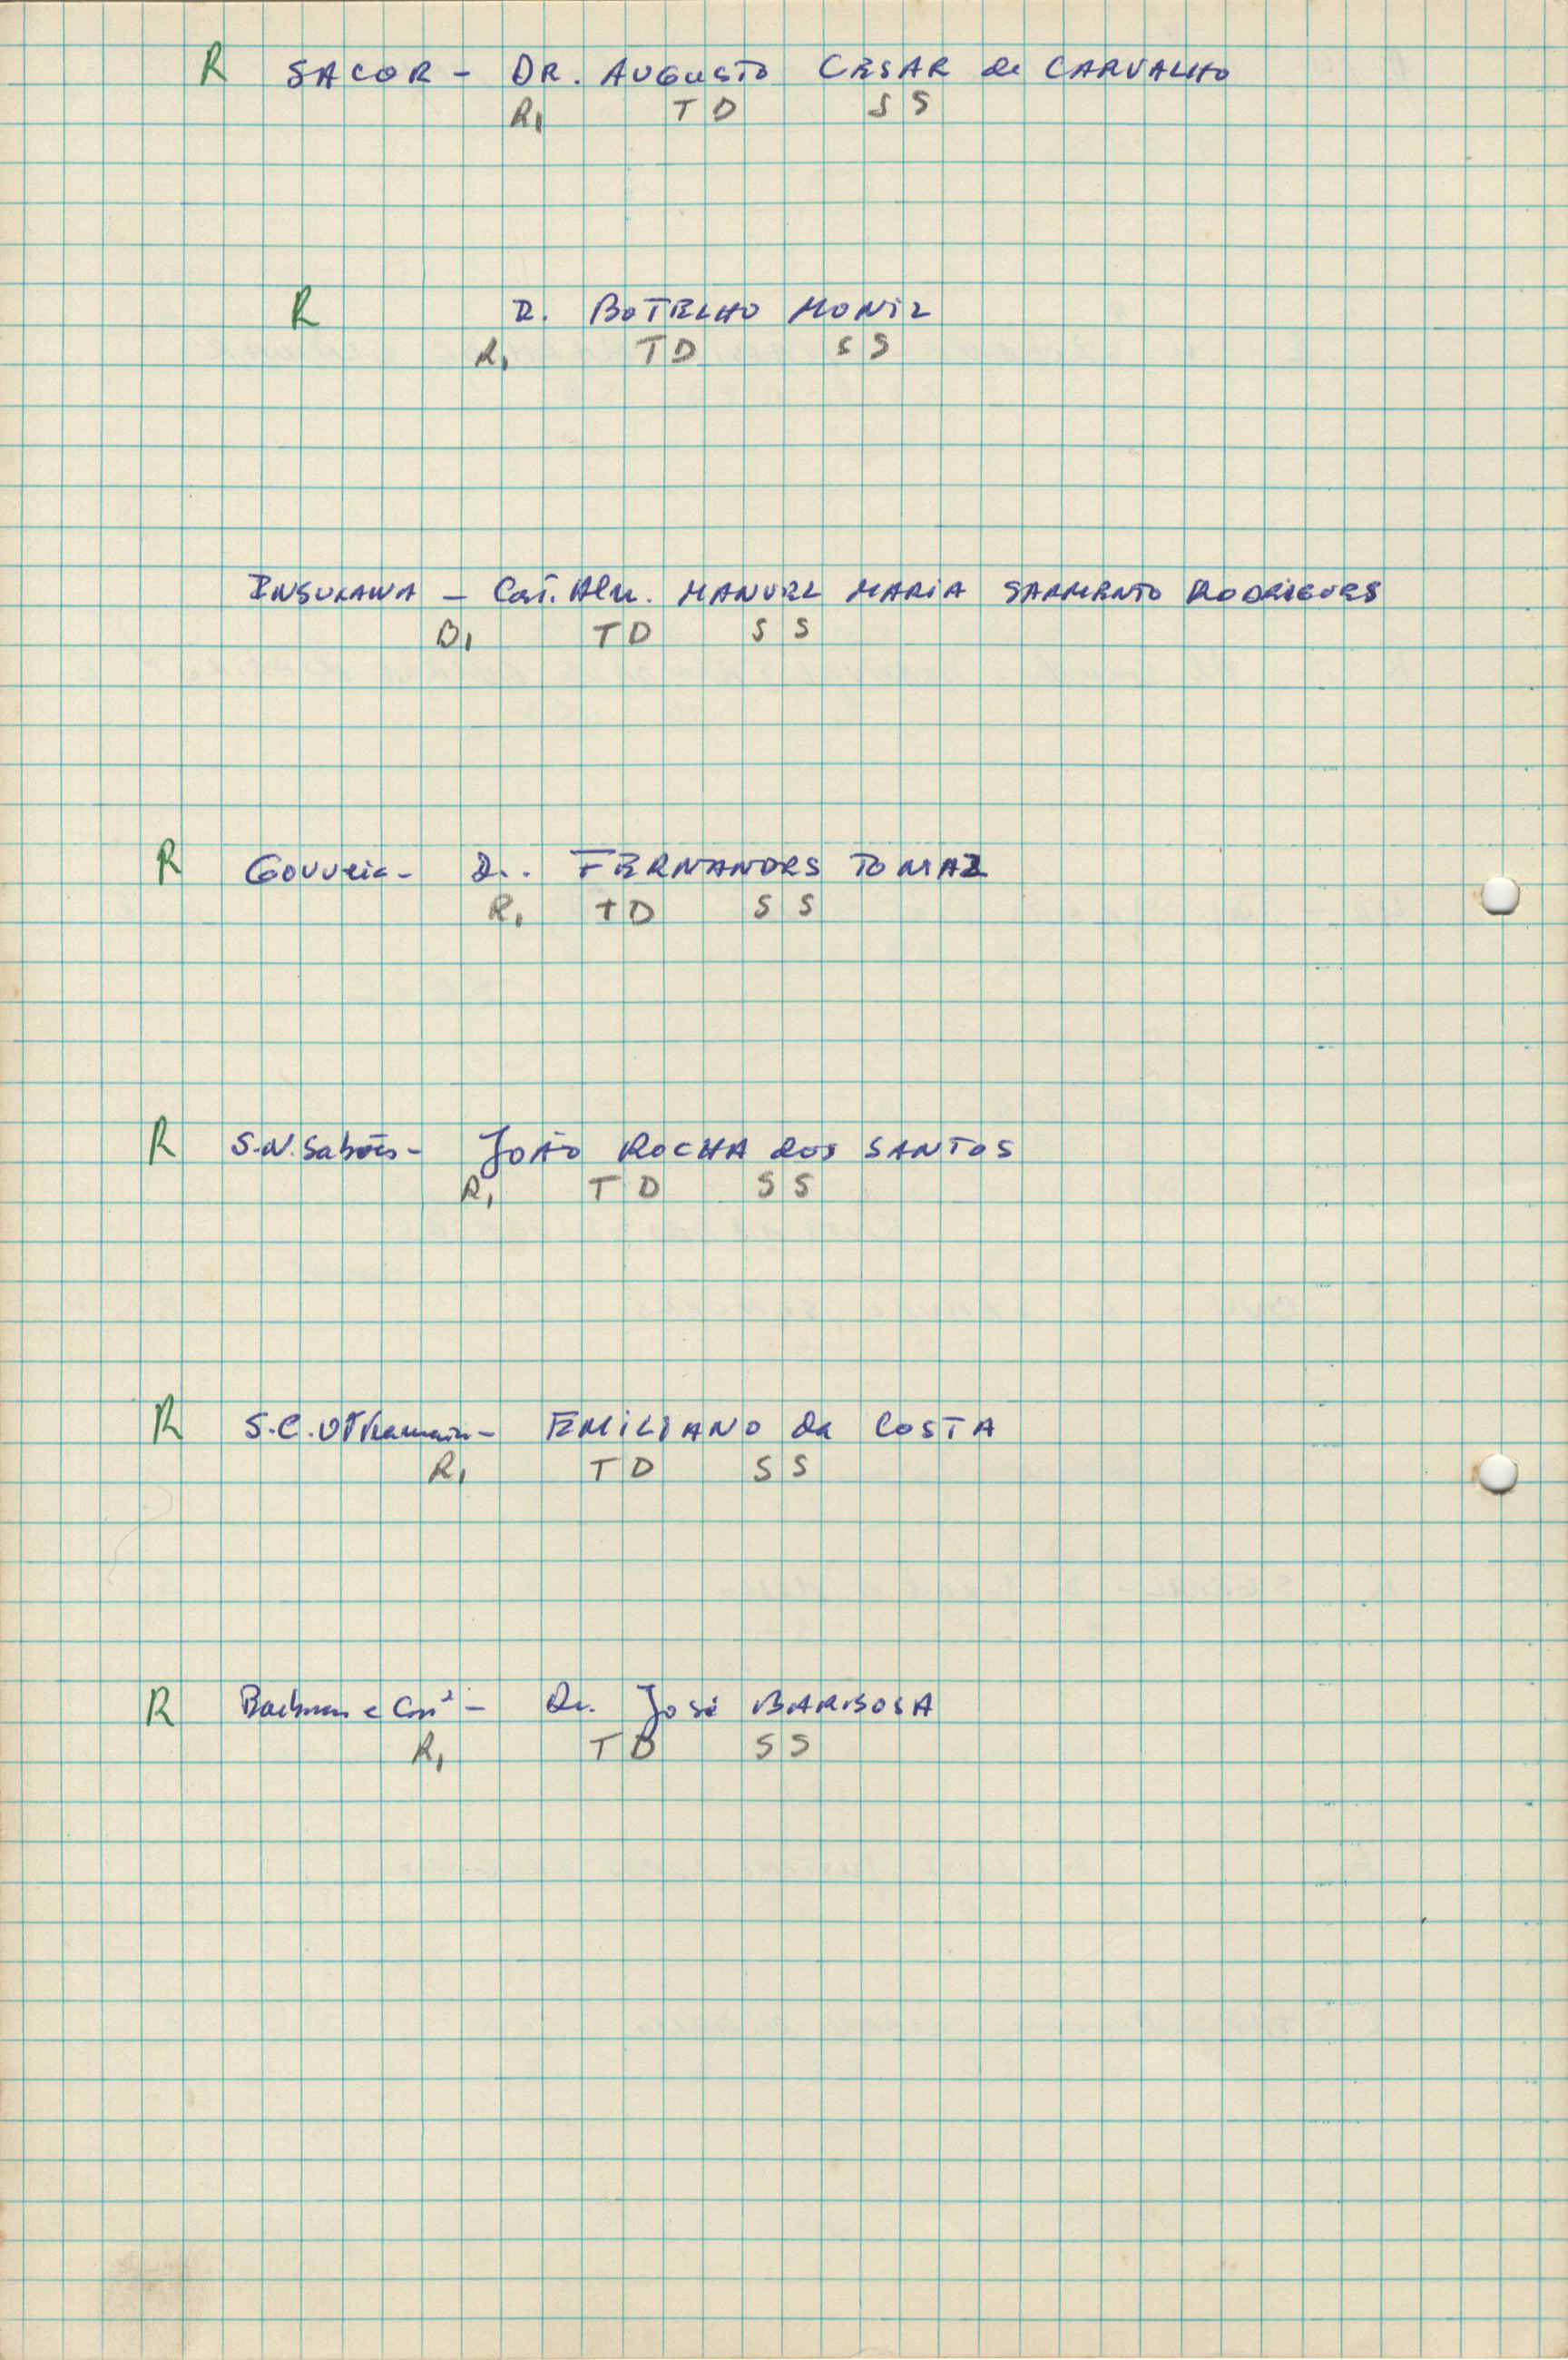 R SACOR - DR. AUGUSTO CESAR de CARVALHO
R1 T D S S
R D. BOTELHO MONIZ
R1 T D S S
INSULANA - Alm. MANUEL MARIA SARMENTO RODRIGUES
T D S S
R Gouveia - Dr. FERNANDES TOMAZ
R1 T D S S
R S.N. Sabões - JOÃO ROCHA dos SANTOS
R1 T D S S
R S.C. Ultramarin - EMILIANO da COSTA
R1 T D S S
R Barbosa e Comª - Dr. José BARBOSA
R1 T D S S